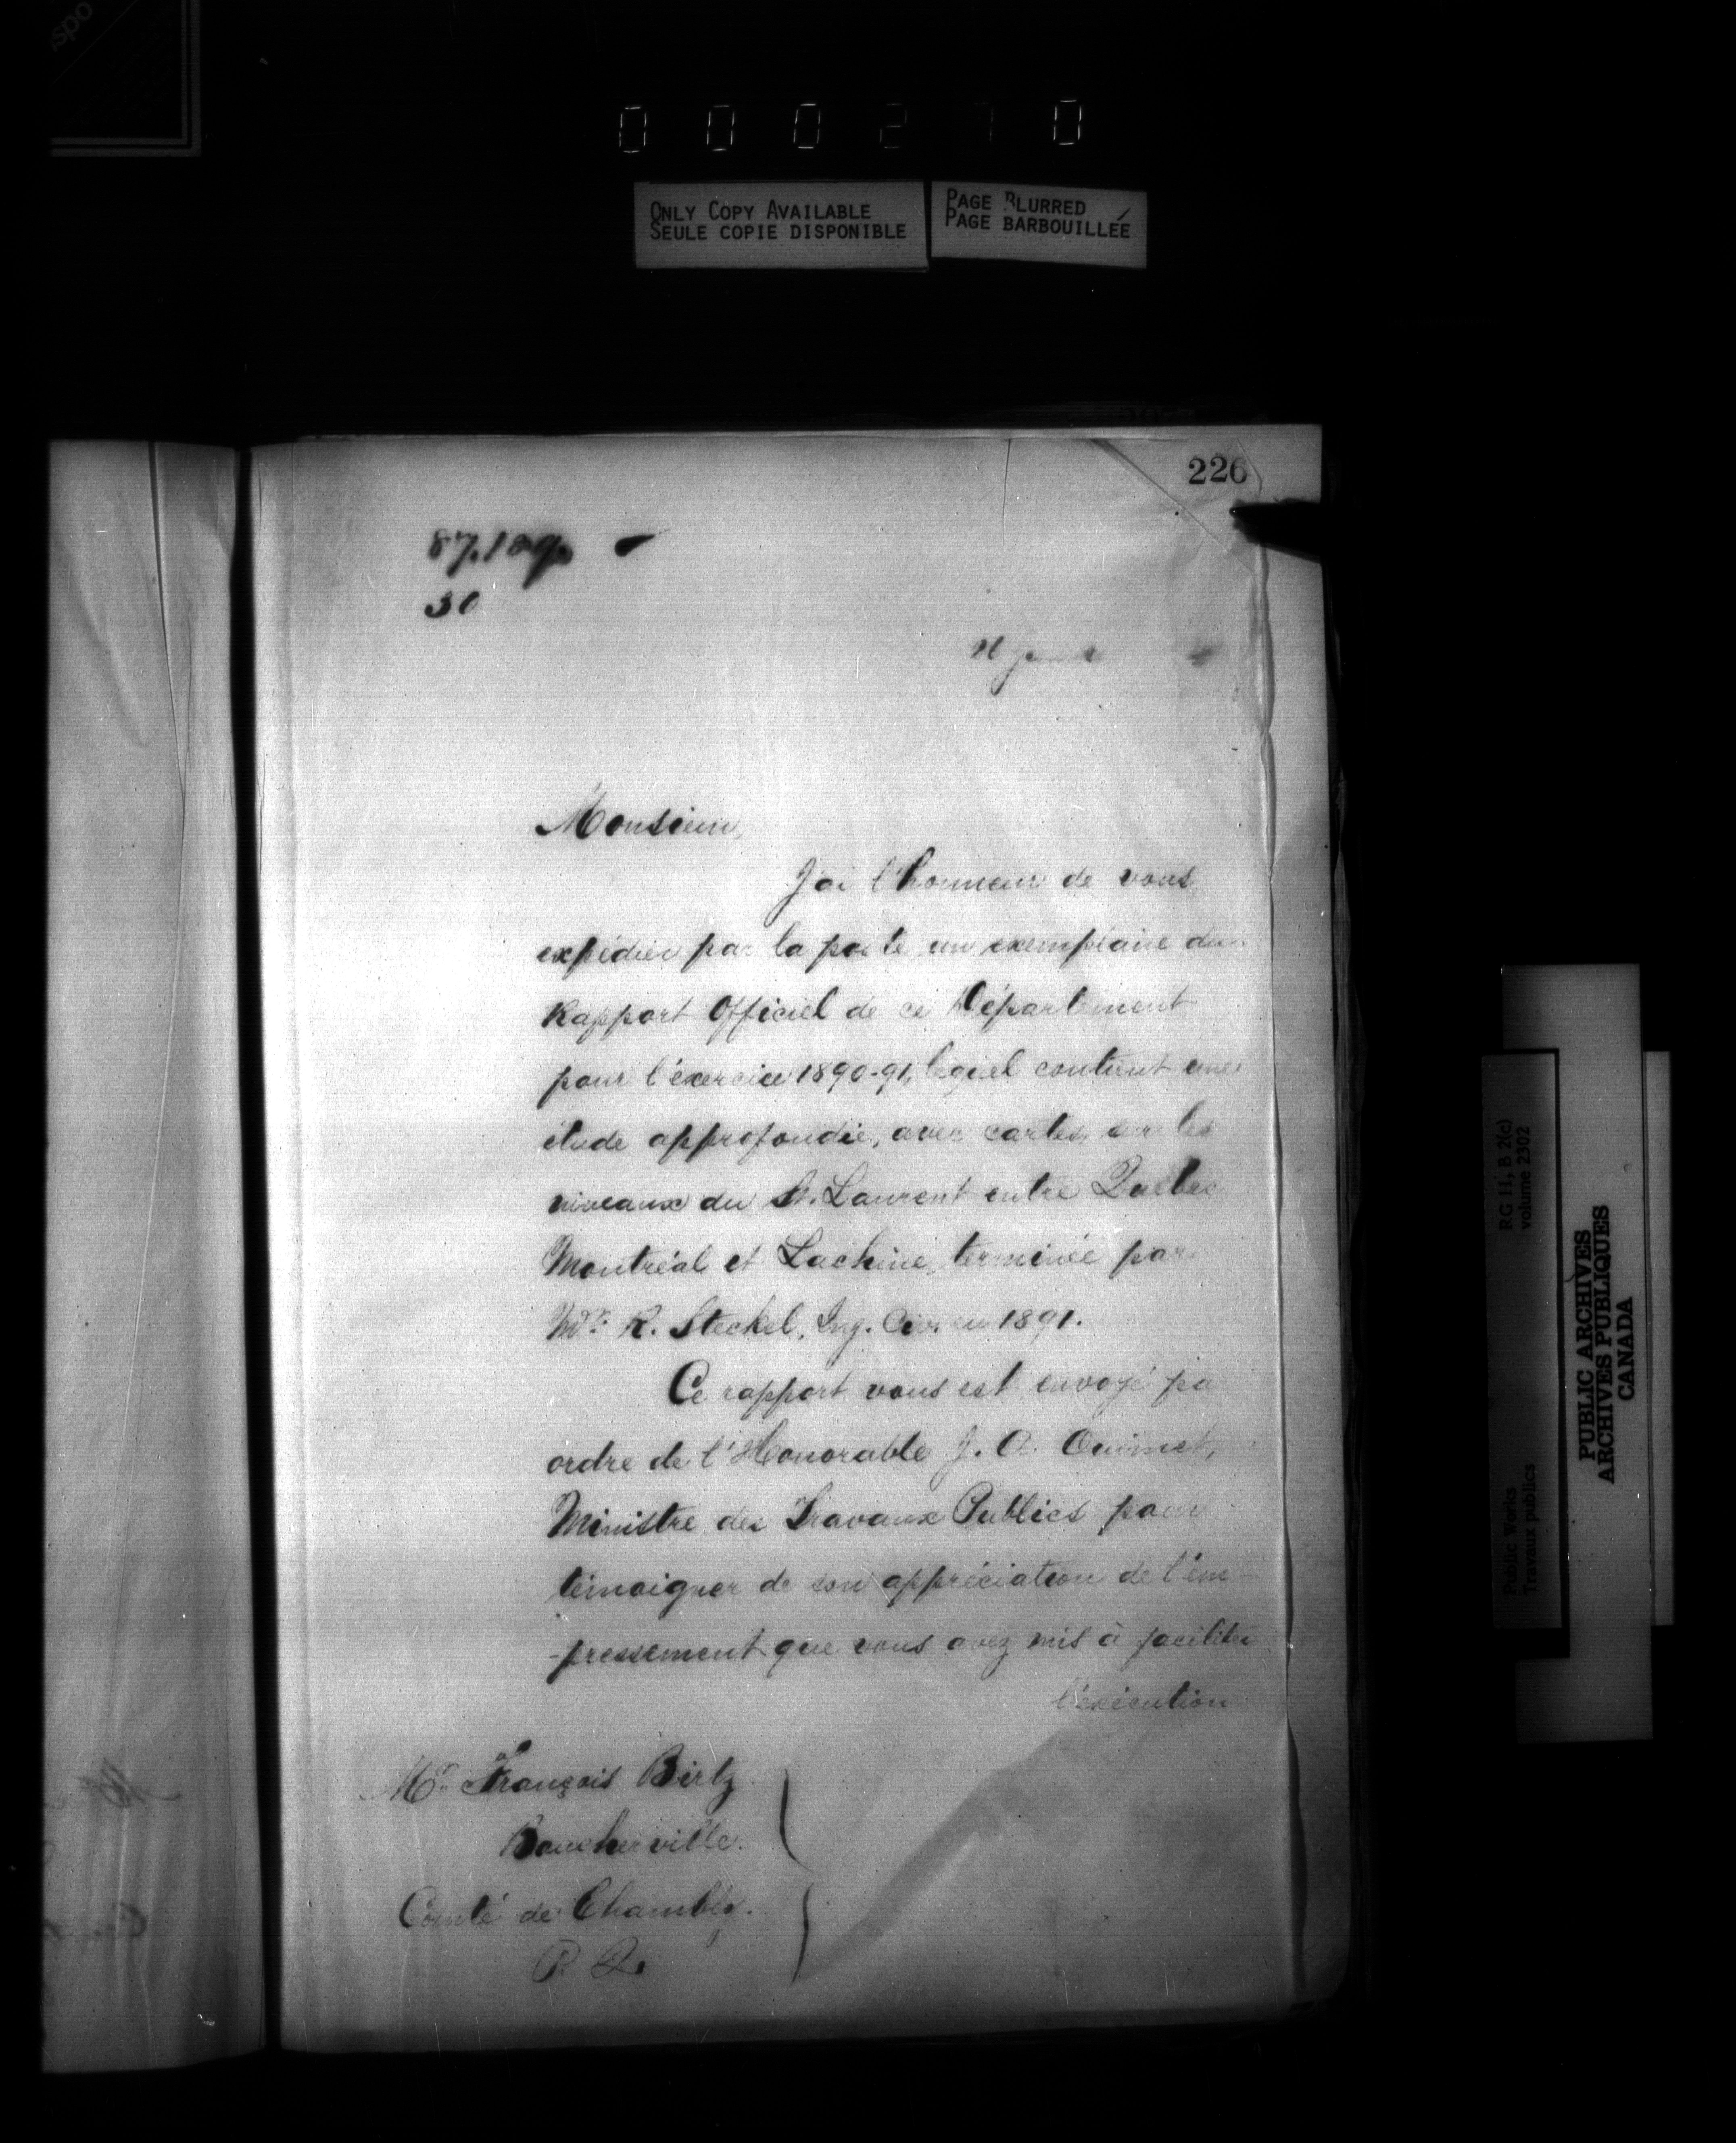 000270
ONLY COPY AVAILABLE
SEULE COPIE DISPONIBLE
PAGE BLURRED
PAGE BARBOUILLÉE
226
30
Monsieur,
J'ai l'honneur de vous
expédier par la poste un exemplaire du
Rapport Officiel de ce Département
pour l'exercice 1890-91, lequel contient une
étude approfondie, avec cartes, sur les
niveaux du St. Laurent entre Québec
Montréal et Lachine, terminée par
Mr. R. Steckel, Ing. Civ. en 1891.
Ce rapport vous est envoyé pa
ordre de l'Honorable J. A. Ouimet,
Ministre des Travaux Publics pour
témoigner de son appréciation de l'em-
-pressement que vous avez mis à faciliter
l'exécution
Mr. François Birtz
Boucherville.
Comté de Chambly.
P. Q.
RG 11, B 2(c)
volume 2302
Public Works
Travaux publics
PUBLIC ARCHIVES
ARCHIVES PUBLIQUES
CANADA